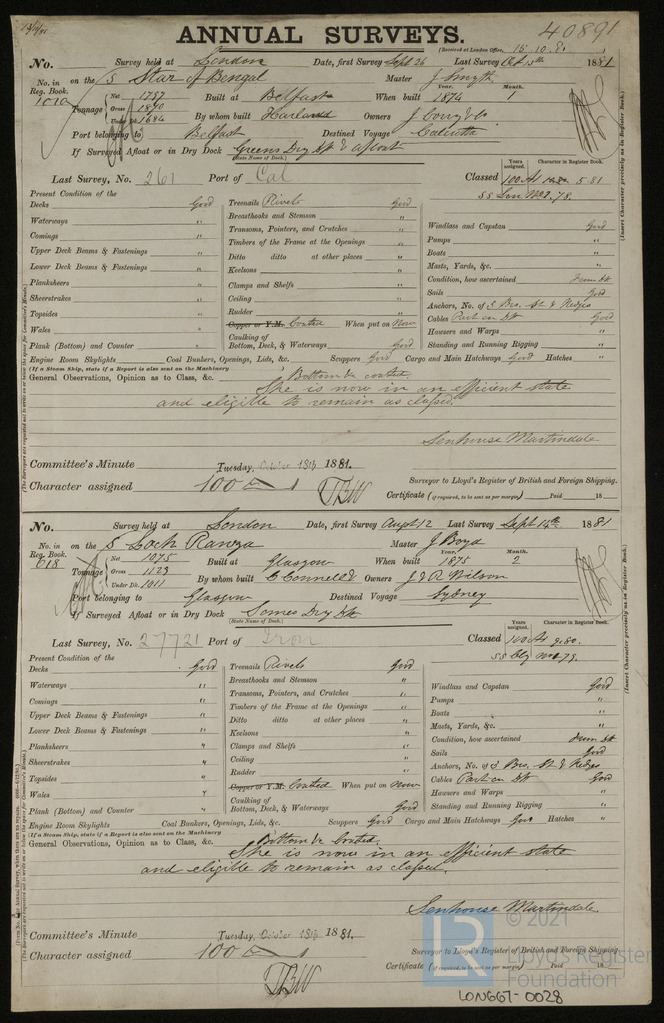 ANNUAL SURVEYS.
40891
(Received at London Office, 15.10.81
No. Survey held at London Date, first Survey Sept 26 Last Survey Oct 1881
No. in Reg. Book. 1010 on the S Star of Bengal Master J Smyth
Tonnage Net 1797 Gross 1870 Under Dk. 1684 Built at Belfast When built Year. 1874 Month. 1
By whom built Harland Owners J Corry & Co
Port belonging to Belfast Destined Voyage Calcutta
If Surveyed Afloat or in Dry Dock Greens Dry Dk & afloat
(State Name of Dock.)
Last Survey, No. 261 Port of Cal Classed Years assigned. 100 A1 Character in Register Book. 5.81
SS Lon No2.78.
(Insert Character precisely as in Register Book.)
Present Condition of the
Decks Good Treenails Rivets Good
Waterways " Breasthooks and Stemson " Windlass and Capstan Good
Comings " Transoms, Pointers, and Crutches " Pumps "
Upper Deck Beams & Fastenings " Timbers of the Frame at the Openings " Boats "
Lower Deck Beams & Fastenings " Ditto ditto at other places " Masts, Yards, &c. "
Planksheers " Keelsons " Condition, how ascertained from Dk
Sheerstrakes " Clamps and Shelfs " Sails Good
Topsides " Ceiling " Anchors, No. of 3 Bro. St & Kedges
Wales " Rudder " Cables Part on Dk Good
Copper or Y.M. Coated When put on Now Hawsers and Warps "
Plank (Bottom) and Counter " Caulking of Bottom, Deck, & Waterways Good Standing and Running Rigging "
Engine Room Skylights Coal Bunkers, Openings, Lids, &c. Scuppers Good Cargo and Main Hatchways Good Hatches "
(If a Steam Ship, state if a Report is also sent on the Machinery )
General Observations, Opinion as to Class, &c. Bottom &c coated.
She is now in an efficient state
and eligible to remain as classed.
Senhouse Martindale
Surveyor to Lloyd's Register of British and Foreign Shipping.
Committee's Minute Tuesday, October 18th 1881.
Character assigned 100
Certificate (if required, to be sent as per margin) Paid 18
No. Survey held at London Date, first Survey Augt 12 Last Survey Sept 14th 1881
No. in Reg. Book. 618 on the S Loch Ranza Master J Boyd
Tonnage Net 1075 Gross 1129 Under Dk. 1011 Built at Glasgow When built Year. 1875 Month. 2
By whom built C Connell & Co Owners J & R Wilson
Port belonging to Glasgow Destined Voyage Sydney
If Surveyed Afloat or in Dry Dock Somes Dry Dk
(State Name of Dock.)
Last Survey, No. 27721 Port of Iron Classed Years assigned. 100 A1 Character in Register Book. 9.80.
SS Clyde No1 79.
(Insert Character precisely as in Register Book.)
Present Condition of the
Decks Good Treenails Rivets Good
Waterways " Breasthooks and Stemson " Windlass and Capstan Good
Comings " Transoms, Pointers, and Crutches " Pumps "
Upper Deck Beams & Fastenings " Timbers of the Frame at the Openings " Boats "
Lower Deck Beams & Fastenings " Ditto ditto at other places " Masts, Yards, &c. "
Planksheers " Keelsons " Condition, how ascertained from Dk
Sheerstrakes " Clamps and Shelfs " Sails Good
Topsides " Ceiling " Anchors, No. of 3 Bro. St & Kedges
Wales " Rudder " Cables Part on Dk Good
Copper or Y.M. Coated When put on Now Hawsers and Warps "
Plank (Bottom) and Counter " Caulking of Bottom, Deck, & Waterways Good Standing and Running Rigging "
Engine Room Skylights Coal Bunkers, Openings, Lids, &c. Scuppers Good Cargo and Main Hatchways Good Hatches "
(If a Steam Ship, state if a Report is also sent on the Machinery )
General Observations, Opinion as to Class, &c. Bottom &c Coated.
She is now in an efficient state
and eligible to remain as classed.
Senhouse Martindale.
Committee's Minute Tuesday, October 18th 1881.
Surveyor to Lloyd's Register of British and Foreign Shipping.
Character assigned 100
Certificate (if required, to be sent as per margin) Paid 18
© 2021
LR
Lloyd's Register
Foundation
LON667-0028